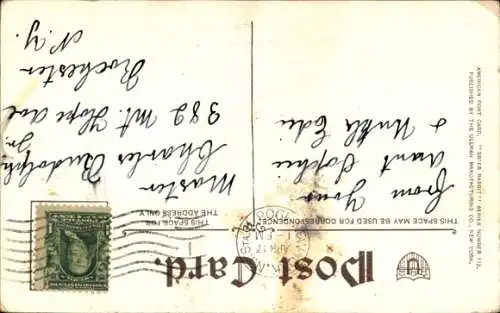 Post Card.
THIS SPACE MAY BE USED FOR CORRESPONDENCE.
THIS SPACE FOR
THE ADDRESS ONLY.
From Your
Aunt Sophie
& Uncle Edu
Master
Charles Rudolph
Jr.
382 Mt. Hope Ave
Rochester
N.Y.
AMERICAN POST CARD. "BRYER RABBIT" SERIES NUMBER 113.
PUBLISHED BY THE ULLMAN MANUFACTURING CO., NEW YORK.